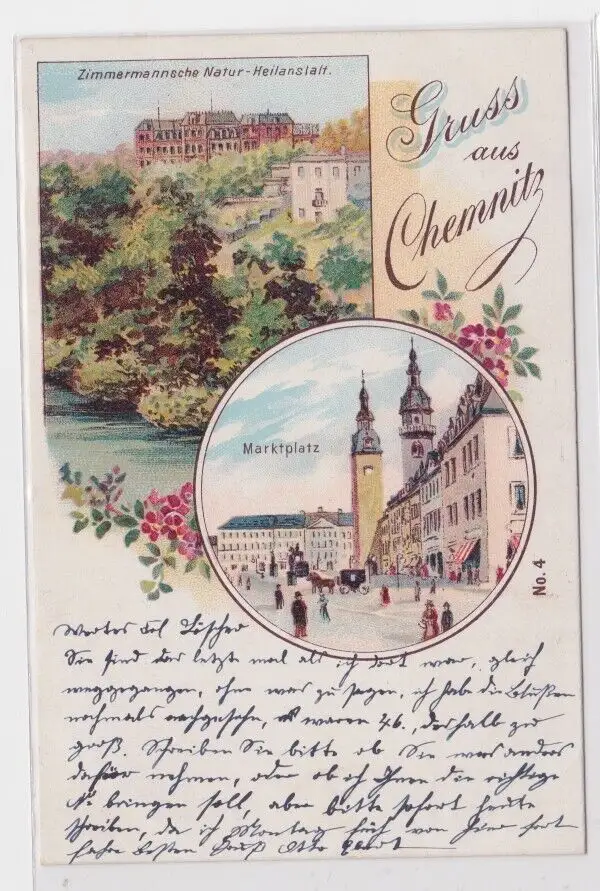 Zimmermannsche Natur-Heilanstalt.
Gruss
aus
Chemnitz
Marktplatz
No. 4
Wertes Frl Löscher
Sie sind das letzte mal als ich dort war, gleich
weggegangen, ohne was zu sagen, ich habe die Blußen
nochmals nachgesehn, es waren 46., deshalb zu
groß. Schreiben Sie bitte ob Sie was anders
dafür nehmen, oder ob ich Ihnen die richtige
No bringen soll, aber bitte sofort heute
schreiben, da ich Montag früh von hier fort
fahre besten Gruß Otto